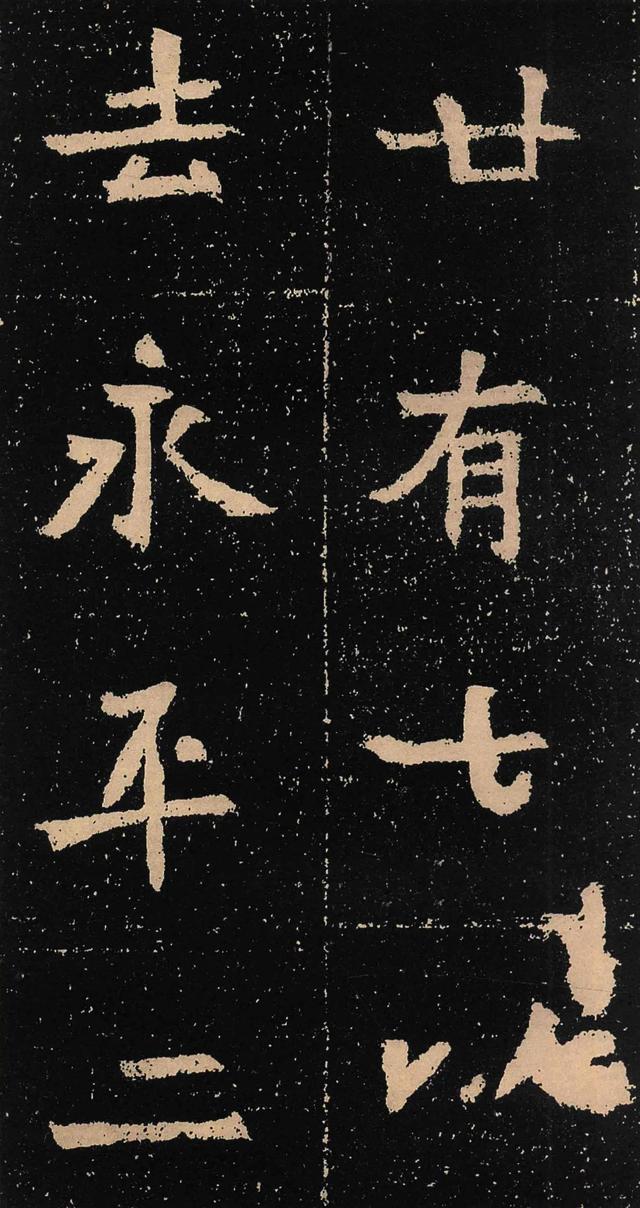 廿有七以
去永平二